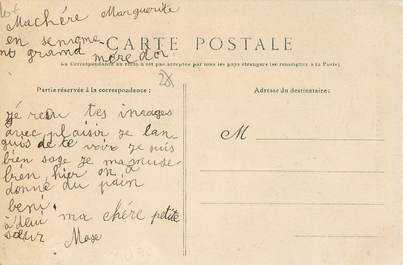 Machére Marguerite
CARTE POSTALE
La Correspondance au recto n'est pas acceptée par tous les pays étrangers (se renseigner à la Poste)
Partie réservée à la correspondance:
Adresse du destinataire:
M
jé recu tes images
avec plaisir je lan
guis de te voir je suis
bien sage je mamuse
bien, hier on a
donné du pain
beni.
à Dieu ma chére petite
sœur Max